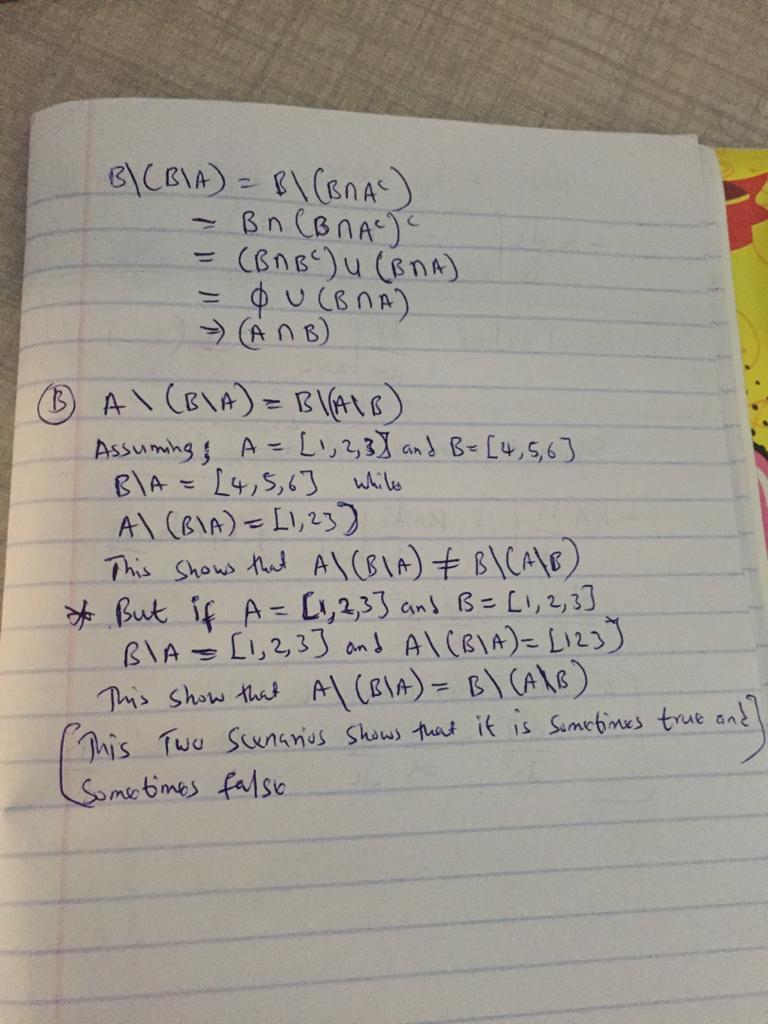 B\(B\A) = B\(B∩Aᶜ)
= B∩(B∩Aᶜ)ᶜ
= (B∩Bᶜ)∪(B∩A)
= ϕ ∪ (B∩A)
⇒ (A∩B)
Ⓑ A\(B\A) = B\(A\B)
Assuming; A = [1,2,3] and B=[4,5,6]
B\A = [4,5,6] while
A\(B\A) = [1,23]
This shows that A\(B\A) ≠ B\(A\B)
* But if A = [1,2,3] and B = [1,2,3]
B\A = [1,2,3] and A\(B\A) = [123]
This show that A\(B\A) = B\(A\B)
[This Two Scenarios shows that it is sometimes true and]
Sometimes false